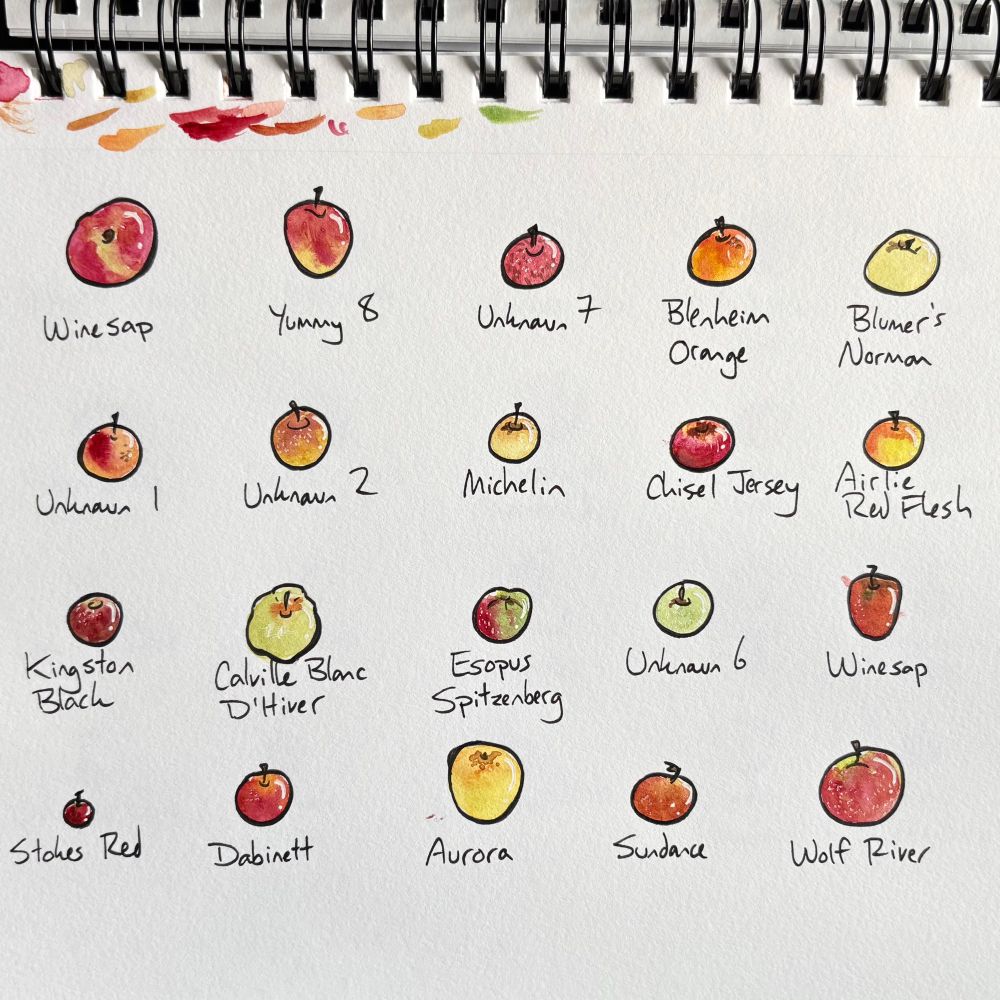 Winesap
Yummy 8
Unknown 7
Blenheim
Orange
Blumer's
Norman
Unknown 1
Unknown 2
Michelin
Chisel Jersey
Airlie
Red Flesh
Kingston
Black
Calville Blanc
D'Hiver
Esopus
Spitzenberg
Unknown 6
Winesap
Stokes Red
Dabinett
Aurora
Sundance
Wolf River